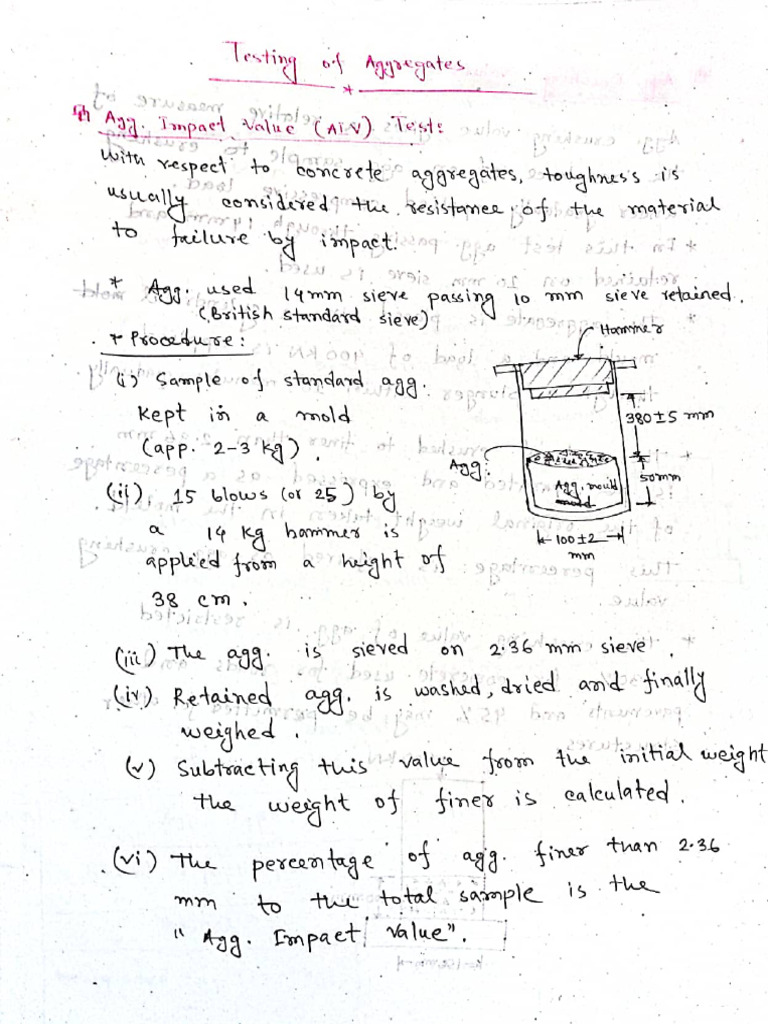 Testing of Aggregates
Agg. Impact Value (AIV) Test:
With respect to concrete aggregates, toughness is
usually considered the resistance of the material
to failure by impact.
* Agg. used 14mm sieve passing 10 mm sieve retained.
(British standard sieve)
* Procedure:
Hammer
(i) Sample of standard agg.
kept in a mold
(app. 2-3 kg).
380±5 mm
Agg.
50mm
Agg. mould
mold
100±2
mm
(ii) 15 blows (or 25) by
a 14 kg hammer is
applied from a height of
38 cm.
(iii) The agg. is sieved on 2.36 mm sieve.
(iv) Retained agg. is washed, dried and finally
weighed.
(v) Subtracting this value from the initial weight
the weight of finer is calculated.
(vi) The percentage of agg. finer than 2.36
mm to the total sample is the
"Agg. Impact Value".